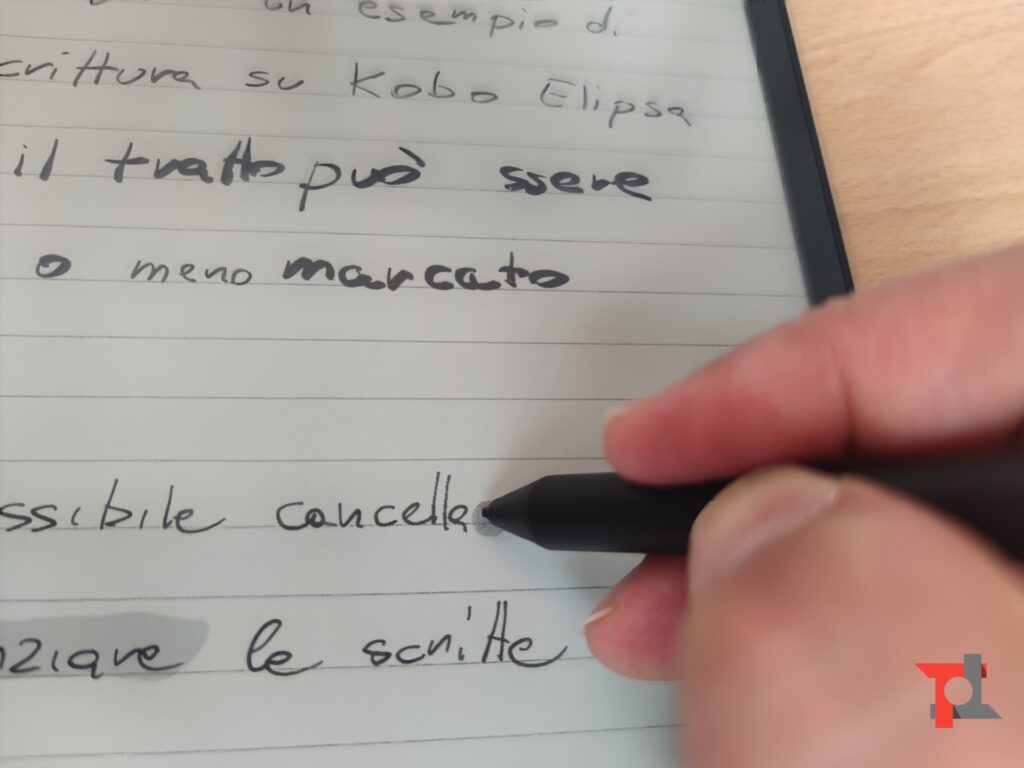 un esempio di
crittura su Kobo Elipsa
il tratto può ssere
o meno marcato
ssibile cancella
nziare le scritte